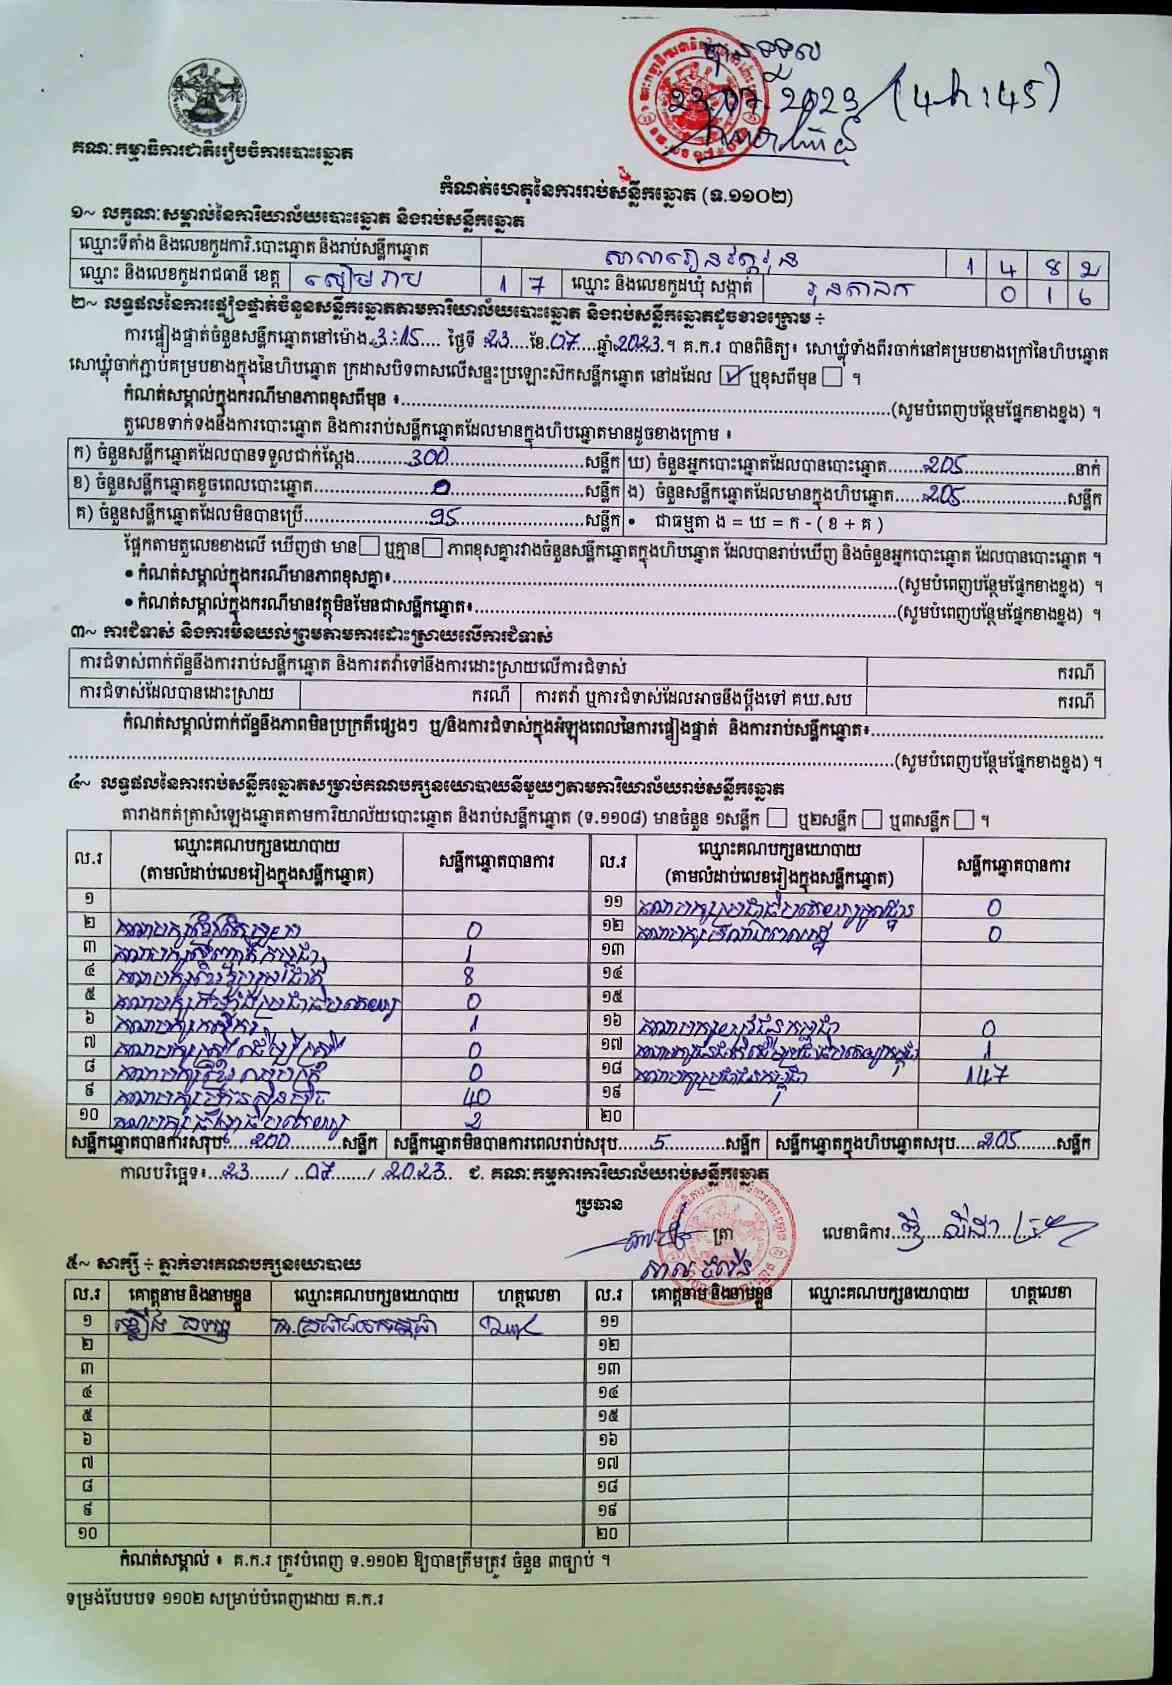 បានទទួល
23.07.2023 (4h:45)
គណៈកម្មាធិការជាតិរៀបចំការបោះឆ្នោត
កំណត់ហេតុនៃការរាប់សន្លឹកឆ្នោត (ទ.១១០២)
១~ លក្ខណៈសម្គាល់នៃការិយាល័យបោះឆ្នោត និងរាប់សន្លឹកឆ្នោត
ឈ្មោះទីតាំង និងលេខកូដការិ.បោះឆ្នោត និងរាប់សន្លឹកឆ្នោត សាលារៀនវត្តរុន 1 4 8 2
ឈ្មោះ និងលេខកូដរាជធានី ខេត្ត សៀមរាប 1 7 ឈ្មោះ និងលេខកូដឃុំ សង្កាត់ រុនតាឯក 0 1 6
២~ លទ្ធផលនៃការផ្ទៀងផ្ទាត់ចំនួនសន្លឹកឆ្នោតតាមការិយាល័យបោះឆ្នោត និងរាប់សន្លឹកឆ្នោតដូចខាងក្រោម ៖
ការផ្ទៀងផ្ទាត់ចំនួនសន្លឹកឆ្នោតនៅម៉ោង 3:15 ថ្ងៃទី 23 ខែ 07 ឆ្នាំ 2023 ។ គ.ក.រ បានពិនិត្យ៖ សោឃ្លុំទាំងពីរចាក់នៅគម្របខាងក្រៅនៃហិបឆ្នោត
សោឃ្លុំចាក់ភ្ជាប់គម្របខាងក្នុងនៃហិបឆ្នោត ក្រដាសបិទពាសលើសន្ទះប្រឡោះស៊កសន្លឹកឆ្នោត នៅដដែល ☑ ឬខុសពីមុន ☐ ។
កំណត់សម្គាល់ក្នុងករណីមានភាពខុសពីមុន ៖ (សូមបំពេញបន្ថែមផ្នែកខាងខ្នង) ។
តួលេខទាក់ទងនឹងការបោះឆ្នោត និងការរាប់សន្លឹកឆ្នោតដែលមានក្នុងហិបឆ្នោតមានដូចខាងក្រោម ៖
ក) ចំនួនសន្លឹកឆ្នោតដែលបានទទួលជាក់ស្តែង 300 សន្លឹក ឃ) ចំនួនអ្នកបោះឆ្នោតដែលបានបោះឆ្នោត 205 នាក់
ខ) ចំនួនសន្លឹកឆ្នោតខូចពេលបោះឆ្នោត 0 សន្លឹក ង) ចំនួនសន្លឹកឆ្នោតដែលមានក្នុងហិបឆ្នោត 205 សន្លឹក
គ) ចំនួនសន្លឹកឆ្នោតដែលមិនបានប្រើ 95 សន្លឹក • ជាធម្មតា ង = ឃ = ក - ( ខ + គ )
ផ្អែកតាមតួលេខខាងលើ ឃើញថា មាន ☐ ឬគ្មាន ☐ ភាពខុសគ្នារវាងចំនួនសន្លឹកឆ្នោតក្នុងហិបឆ្នោត ដែលបានរាប់ឃើញ និងចំនួនអ្នកបោះឆ្នោត ដែលបានបោះឆ្នោត ។
• កំណត់សម្គាល់ក្នុងករណីមានភាពខុសគ្នា៖ (សូមបំពេញបន្ថែមផ្នែកខាងខ្នង) ។
• កំណត់សម្គាល់ក្នុងករណីមានវត្ថុមិនមែនជាសន្លឹកឆ្នោត៖ (សូមបំពេញបន្ថែមផ្នែកខាងខ្នង) ។
៣~ ការជំទាស់ និងការមិនយល់ព្រមតាមការដោះស្រាយលើការជំទាស់
ការជំទាស់ពាក់ព័ន្ធនឹងការរាប់សន្លឹកឆ្នោត និងការតវ៉ាទៅនឹងការដោះស្រាយលើការជំទាស់ ករណី
ការជំទាស់ដែលបានដោះស្រាយ ករណី ការតវ៉ា ឬការជំទាស់ដែលអាចនឹងប្តឹងទៅ គឃ.សប ករណី
កំណត់សម្គាល់ពាក់ព័ន្ធនឹងភាពមិនប្រក្រតីផ្សេងៗ ឬ/និងការជំទាស់ក្នុងអំឡុងពេលនៃការផ្ទៀងផ្ទាត់ និងការរាប់សន្លឹកឆ្នោត៖
(សូមបំពេញបន្ថែមផ្នែកខាងខ្នង) ។
៤~ លទ្ធផលនៃការរាប់សន្លឹកឆ្នោតសម្រាប់គណបក្សនយោបាយនីមួយៗតាមការិយាល័យរាប់សន្លឹកឆ្នោត
តារាងកត់ត្រាសំឡេងឆ្នោតតាមការិយាល័យបោះឆ្នោត និងរាប់សន្លឹកឆ្នោត (ទ.១១០៨) មានចំនួន ១សន្លឹក ☐ ឬ២សន្លឹក ☐ ឬ៣សន្លឹក ☐ ។
ល.រ ឈ្មោះគណបក្សនយោបាយ (តាមលំដាប់លេខរៀងក្នុងសន្លឹកឆ្នោត) សន្លឹកឆ្នោតបានការ ល.រ ឈ្មោះគណបក្សនយោបាយ (តាមលំដាប់លេខរៀងក្នុងសន្លឹកឆ្នោត) សន្លឹកឆ្នោតបានការ
១ ១១ គណបក្ស 0
២ គណបក្ស 0 ១២ គណបក្ស 0
៣ គណបក្ស 1 ១៣
៤ គណបក្ស 8 ១៤
៥ គណបក្ស 0 ១៥
៦ គណបក្ស 1 ១៦ គណបក្សយុវជនកម្ពុជា 0
៧ គណបក្ស 0 ១៧ គណបក្ស 1
៨ គណបក្ស 0 ១៨ គណបក្សប្រជាជនកម្ពុជា 147
៩ គណបក្ស 40 ១៩
១០ គណបក្ស 2 ២០
សន្លឹកឆ្នោតបានការសរុប 200 សន្លឹក សន្លឹកឆ្នោតមិនបានការពេលរាប់សរុប 5 សន្លឹក សន្លឹកឆ្នោតក្នុងហិបឆ្នោតសរុប 205 សន្លឹក
កាលបរិច្ឆេទ៖ 23 / 07 / 2023 ជ. គណៈកម្មការការិយាល័យរាប់សន្លឹកឆ្នោត
ប្រធាន
ត្រា លេខាធិការ
៥~ សាក្សី ៖ ភ្នាក់ងារគណបក្សនយោបាយ
ល.រ គោត្តនាម និងនាមខ្លួន ឈ្មោះគណបក្សនយោបាយ ហត្ថលេខា ល.រ គោត្តនាម និងនាមខ្លួន ឈ្មោះគណបក្សនយោបាយ ហត្ថលេខា
១ គ.ប្រជាជនកម្ពុជា ១១
២ ១២
៣ ១៣
៤ ១៤
៥ ១៥
៦ ១៦
៧ ១៧
៨ ១៨
៩ ១៩
១០ ២០
កំណត់សម្គាល់ ៖ គ.ក.រ ត្រូវបំពេញ ទ.១១០២ ឱ្យបានត្រឹមត្រូវ ចំនួន ៣ច្បាប់ ។
ទម្រង់បែបបទ ១១០២ សម្រាប់បំពេញដោយ គ.ក.រ